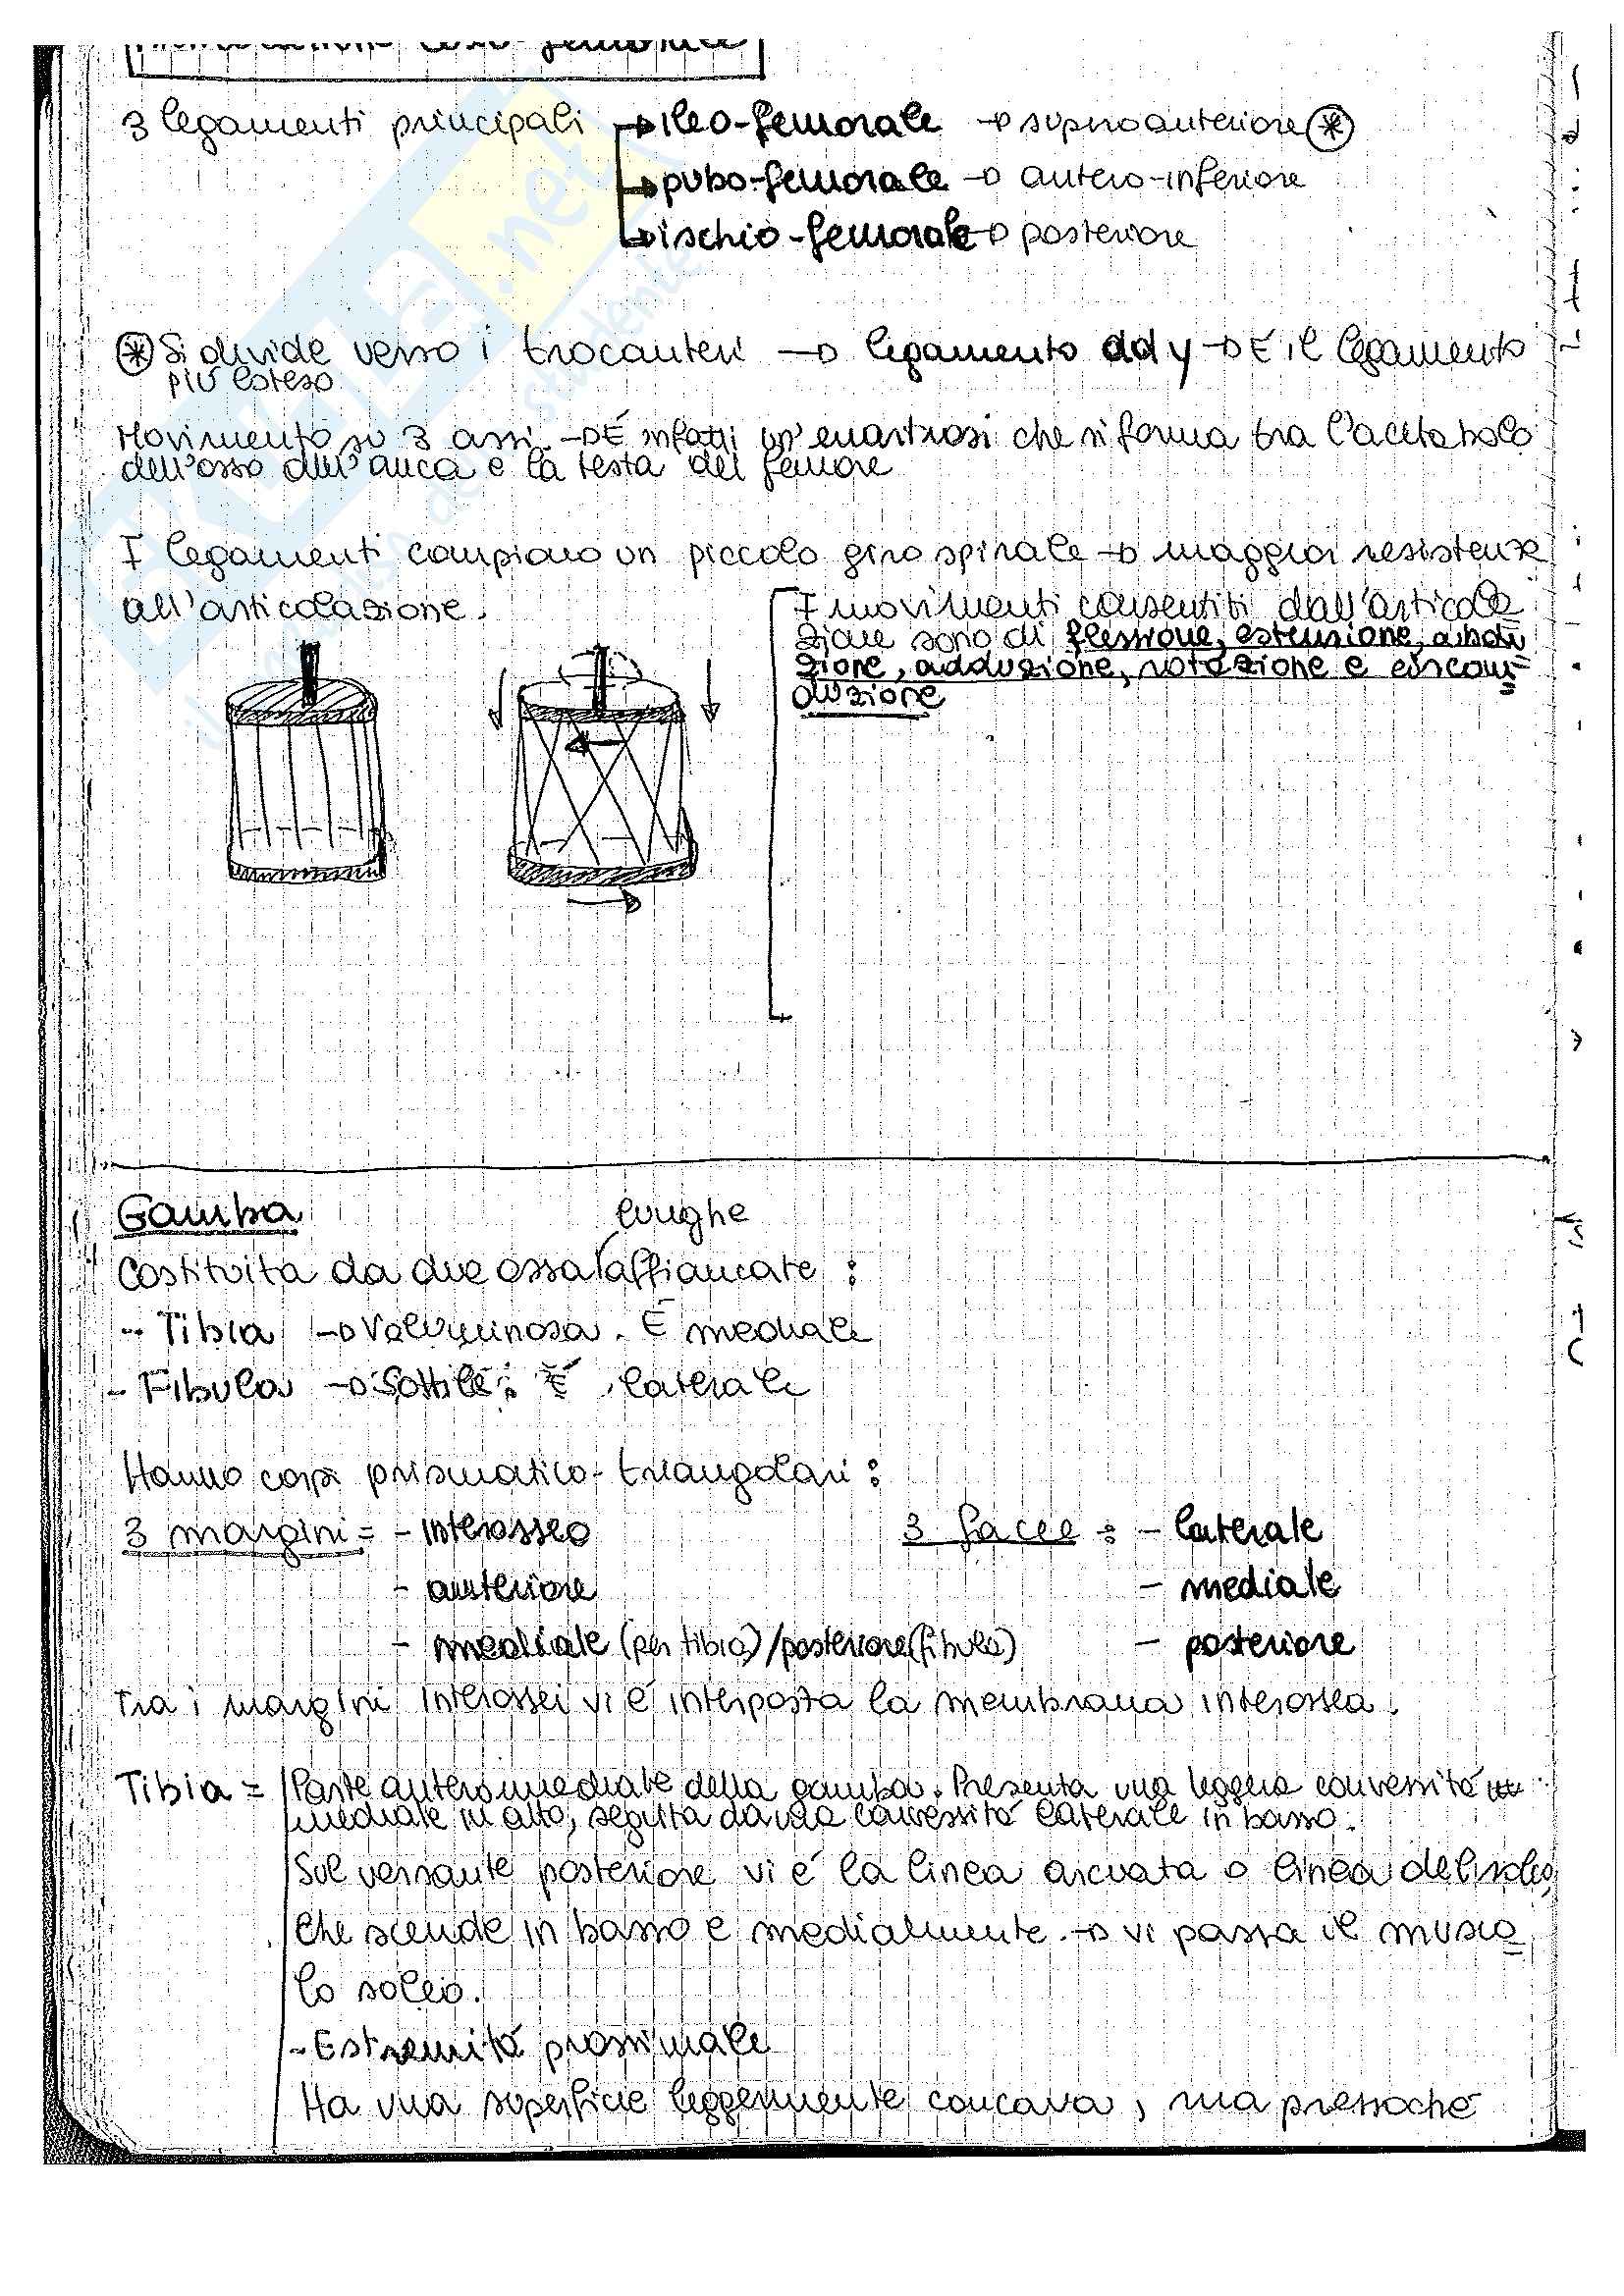 coxo-femorale
3 legamenti principali → ileo-femorale → supero anteriore ✱
→ pubo-femorale → antero-inferiore
→ ischio-femorale → posteriore
✱ Si divide verso i trocanteri → legamento ad y → È il legamento
più esteso
Movimento su 3 assi → È infatti un'enartrosi che si forma tra l'acetabolo
dell'osso dell'anca e la testa del femore
I legamenti compiono un piccolo giro spirale → maggior resistenza
all'articolazione.
I movimenti consentiti dall'articola
zione sono di flessione, estensione, abdu
zione, adduzione, rotazione e circon=
duzione
Gamba
lunghe
Costituita da due ossa affiancate :
- Tibia → Voluminosa. È mediale
- Fibula → Sottile. È laterale
Hanno corpi prismatico-triangolari :
3 margini = - interosseo
3 facce : - laterale
- anteriore
- mediale
- mediale (per tibia) / posteriore (fibula)
- posteriore
Tra i margini interossei vi è interposta la membrana interossea.
Tibia = Parte anteromediale della gamba. Presenta una leggera convessità
mediale in alto, seguita da una convessità laterale in basso.
Sul versante posteriore vi è la linea arcuata o linea del soleo,
che scende in basso e medialmente. → vi passa il musco=
lo soleo.
- Estremità prossimale
Ha una superficie leggermente concava, ma pressoché